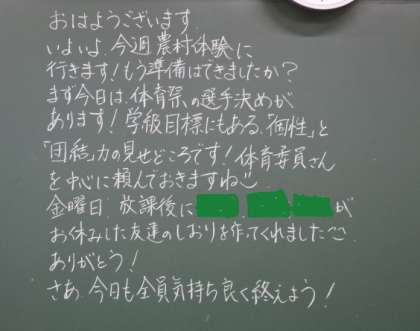 おはようございます.
いよいよ.今週農村体験に
行きます！もう準備はできましたか？
まず今日は.体育祭の選手決めが
あります！学級目標にもある.「個性」と
「団結」力の見せどころです！体育委員さん
を中心に頼んでおきますね
金曜日.放課後に が
お休みした友達のしおりを作ってくれました
ありがとう！
さあ.今日も全員気持ち良く終えよう！